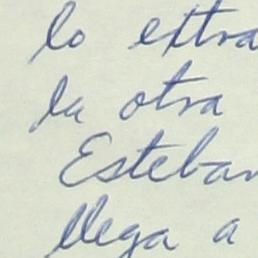 lo extra
la otra
Esteban
llega a